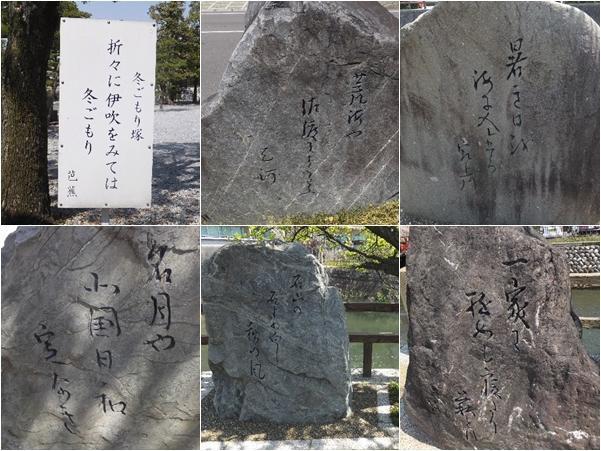 冬ごもり塚
折々に伊吹をみては
冬ごもり
芭蕉
荒海や
佐渡によこたふ
天河
暑き日を
海に
名月や
北国日和
定なき
石山の
石より白し
秋の風
一家に
遊女も寝たり
萩と月